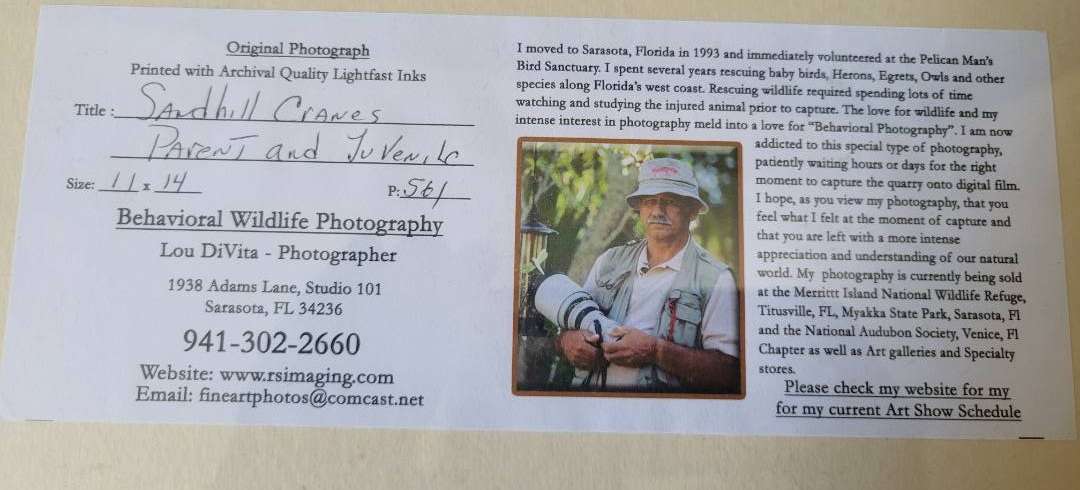 Original Photograph
Printed with Archival Quality Lightfast Inks
Title : Sandhill Cranes
Parent and Juvenile
Size: 11 x 14 P: 561
Behavioral Wildlife Photography
Lou DiVita - Photographer
1938 Adams Lane, Studio 101
Sarasota, FL 34236
941-302-2660
Website: www.rsimaging.com
Email: fineartphotos@comcast.net
I moved to Sarasota, Florida in 1993 and immediately volunteered at the Pelican Man's
Bird Sanctuary. I spent several years rescuing baby birds, Herons, Egrets, Owls and other
species along Florida's west coast. Rescuing wildlife required spending lots of time
watching and studying the injured animal prior to capture. The love for wildlife and my
intense interest in photography meld into a love for "Behavioral Photography". I am now
addicted to this special type of photography,
patiently waiting hours or days for the right
moment to capture the quarry onto digital film.
I hope, as you view my photography, that you
feel what I felt at the moment of capture and
that you are left with a more intense
appreciation and understanding of our natural
world. My photography is currently being sold
at the Merrittt Island National Wildlife Refuge,
Titusville, FL, Myakka State Park, Sarasota, Fl
and the National Audubon Society, Venice, Fl
Chapter as well as Art galleries and Specialty
stores.
Please check my website for my
for my current Art Show Schedule